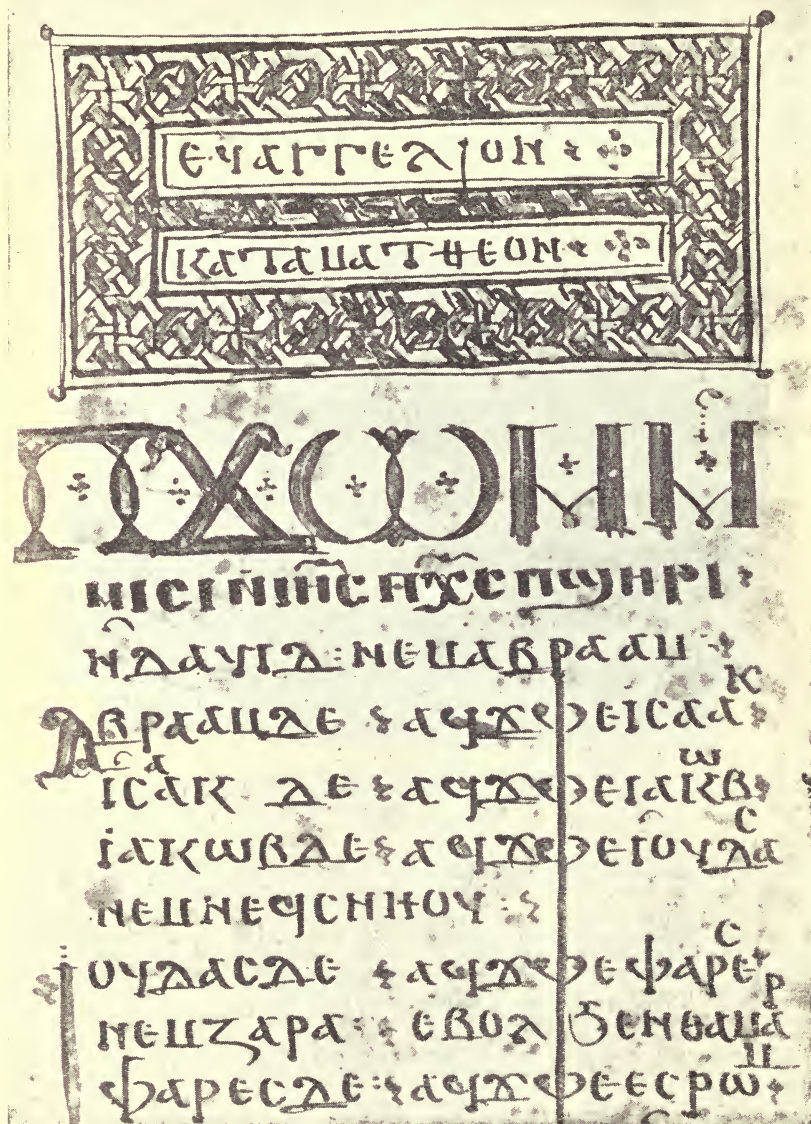 ⲈⲨⲀⲄⲄⲈⲖⲒⲞⲚ
ⲔⲀⲦⲀⲘⲀⲦⲐⲈⲞⲚ
ⲠϪⲰⲘ Ⲙ
ⲙⲓⲥⲓ ⲛ̀ⲓⲏ̅ⲥ ⲡⲭ̅ⲥ ⲡϣⲏⲣⲓ
ⲛ̀ⲇⲁⲩⲓⲇ: ⲛⲉⲙⲁⲃⲣⲁⲁⲙ
Ⲁⲃⲣⲁⲁⲙⲇⲉ ⲁϥϫⲫⲉⲓⲥⲁⲁⲕ
ⲓⲥⲁⲁⲕ ⲇⲉ ⲁϥϫⲫⲉⲓⲁⲕⲱⲃ
ⲓⲁⲕⲱⲃⲇⲉ ⲁϥϫⲫⲉⲓⲟⲩⲇⲁⲥ
ⲛⲉⲙⲛⲉϥⲥⲛⲏⲟⲩ
ⲓⲟⲩⲇⲁⲥⲇⲉ ⲁϥϫⲫⲉⲫⲁⲣⲉⲥ
ⲛⲉⲙⲍⲁⲣⲁ ⲉⲃⲟⲗ ϧⲉⲛⲑⲁⲙⲁⲣ
ⲫⲁⲣⲉⲥⲇⲉ ⲁϥϫⲫⲉⲉⲥⲣⲱⲙ